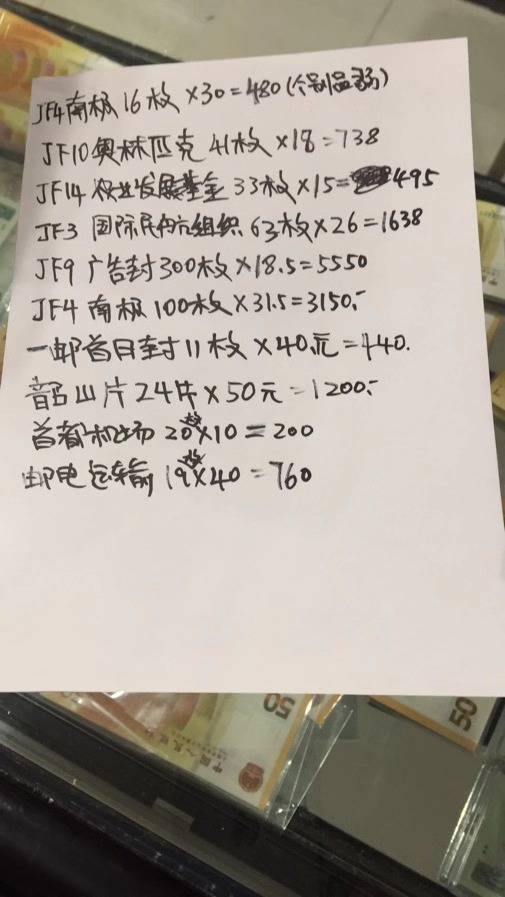 JF4南极16枚×30=480(个别品弱)
JF10奥林匹克 41枚×18=738
JF14农业发展基金33枚×15=495
JF3 国际民航组织63枚×26=1638
JF9 广告封300枚×18.5=5550
JF4 南极100枚×31.5=3150.-
一邮首日封11枚×40元=440.
韶山片24片×50元=1200.-
首都机场20枚×10=200
邮电运输19枚×40=760
50
中国人民银行
50